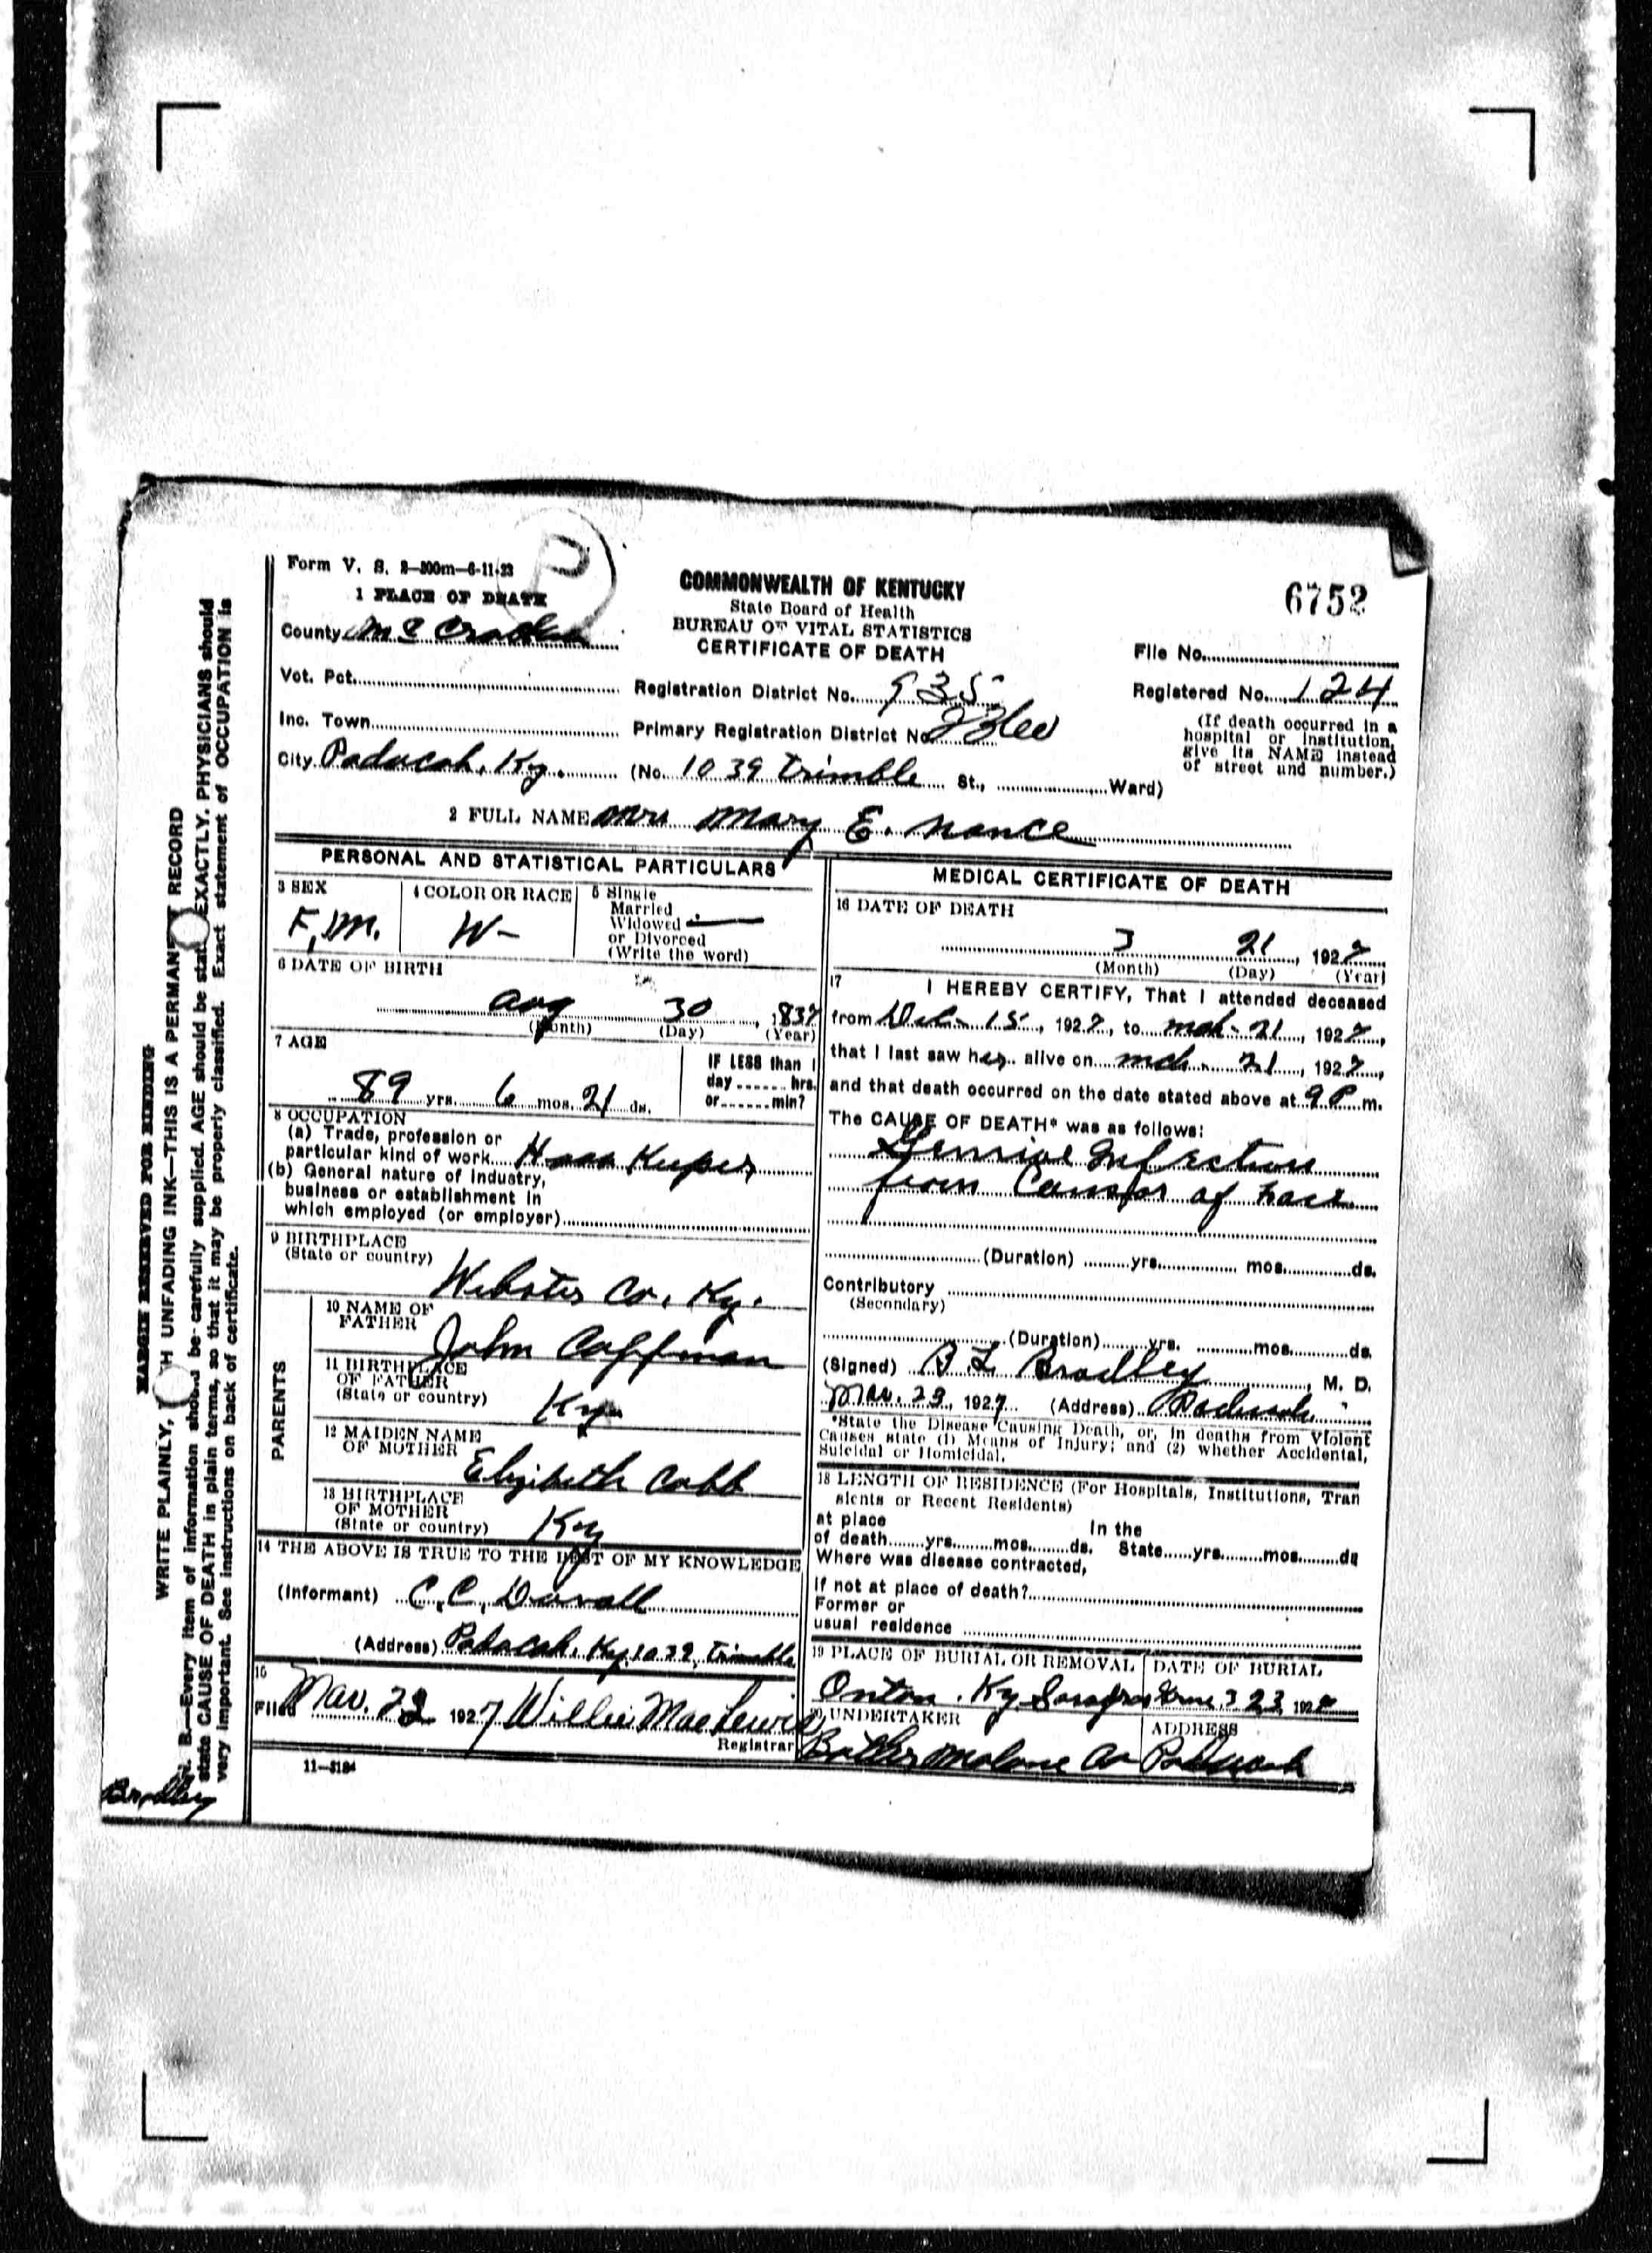 Form V. S. 2—300m—6-11-23
1 PLACE OF DEATH
COMMONWEALTH OF KENTUCKY
State Board of Health
BUREAU OF VITAL STATISTICS
CERTIFICATE OF DEATH
6752
County McCracken
File No.
Vot. Pct.
Registration District No. 935
Registered No. 124
Inc. Town
Primary Registration District No.
(If death occurred in a hospital or institution, give its NAME instead of street and number.)
City Paducah, Ky. (No. 1039 Trimble St., Ward)
2 FULL NAME Mrs Mary E. Nance
PERSONAL AND STATISTICAL PARTICULARS
3 SEX
F,M.
4 COLOR OR RACE
W-
5 Single
Married
Widowed
or Divorced
(Write the word)
6 DATE OF BIRTH
Aug 30, 1837
(Month) (Day) (Year)
7 AGE
89 yrs. 6 mos. 21 ds.
IF LESS than 1
day ...... hrs.
or ...... min?
8 OCCUPATION
(a) Trade, profession or
particular kind of work Keeper
(b) General nature of industry,
business or establishment in
which employed (or employer)
9 BIRTHPLACE
(State or country)
Webster Co, Ky.
PARENTS
10 NAME OF
FATHER
John Coffman
11 BIRTHPLACE
OF FATHER
(State or country)
Ky
12 MAIDEN NAME
OF MOTHER
Elizibeth Cobb
13 BIRTHPLACE
OF MOTHER
(State or country)
Ky
14 THE ABOVE IS TRUE TO THE BEST OF MY KNOWLEDGE
(Informant) C.C. Duvall
(Address) Paducah, Ky. 1039, Trimble
15
Filed Mar. 22 1927 Willie Mae Lewis
Registrar
11—3184
MEDICAL CERTIFICATE OF DEATH
16 DATE OF DEATH
3 21, 1927
(Month) (Day) (Year)
17 I HEREBY CERTIFY, That I attended deceased
from 15, 1927, to Mch. 21, 1927,
that I last saw her alive on Mch. 21, 1927,
and that death occurred on the date stated above at 9 P m.
The CAUSE OF DEATH* was as follows:
Infection
from of
(Duration) yrs. mos. ds.
Contributory
(Secondary)
(Duration) yrs. mos. ds.
(Signed) B. L. Bradley, M. D.
Mar. 23, 1927 (Address) Paducah
*State the Disease Causing Death, or, in deaths from Violent
Causes state (1) Means of Injury; and (2) whether Accidental,
Suicidal or Homicidal.
18 LENGTH OF RESIDENCE (For Hospitals, Institutions, Tran
sients or Recent Residents)
at place In the
of death yrs. mos. ds. State yrs. mos. ds
Where was disease contracted,
If not at place of death?
Former or
usual residence
19 PLACE OF BURIAL OR REMOVAL
Onton, Ky.
DATE OF BURIAL
3 23, 192
UNDERTAKER
Malone Co
ADDRESS
Paducah
MARGIN RESERVED FOR BINDING
WRITE PLAINLY, WITH UNFADING INK—THIS IS A PERMANENT RECORD
N. B.—Every item of information should be carefully supplied. AGE should be stated EXACTLY. PHYSICIANS should
state CAUSE OF DEATH in plain terms, so that it may be properly classified. Exact statement of OCCUPATION is
very important. See instructions on back of certificate.
Bradley